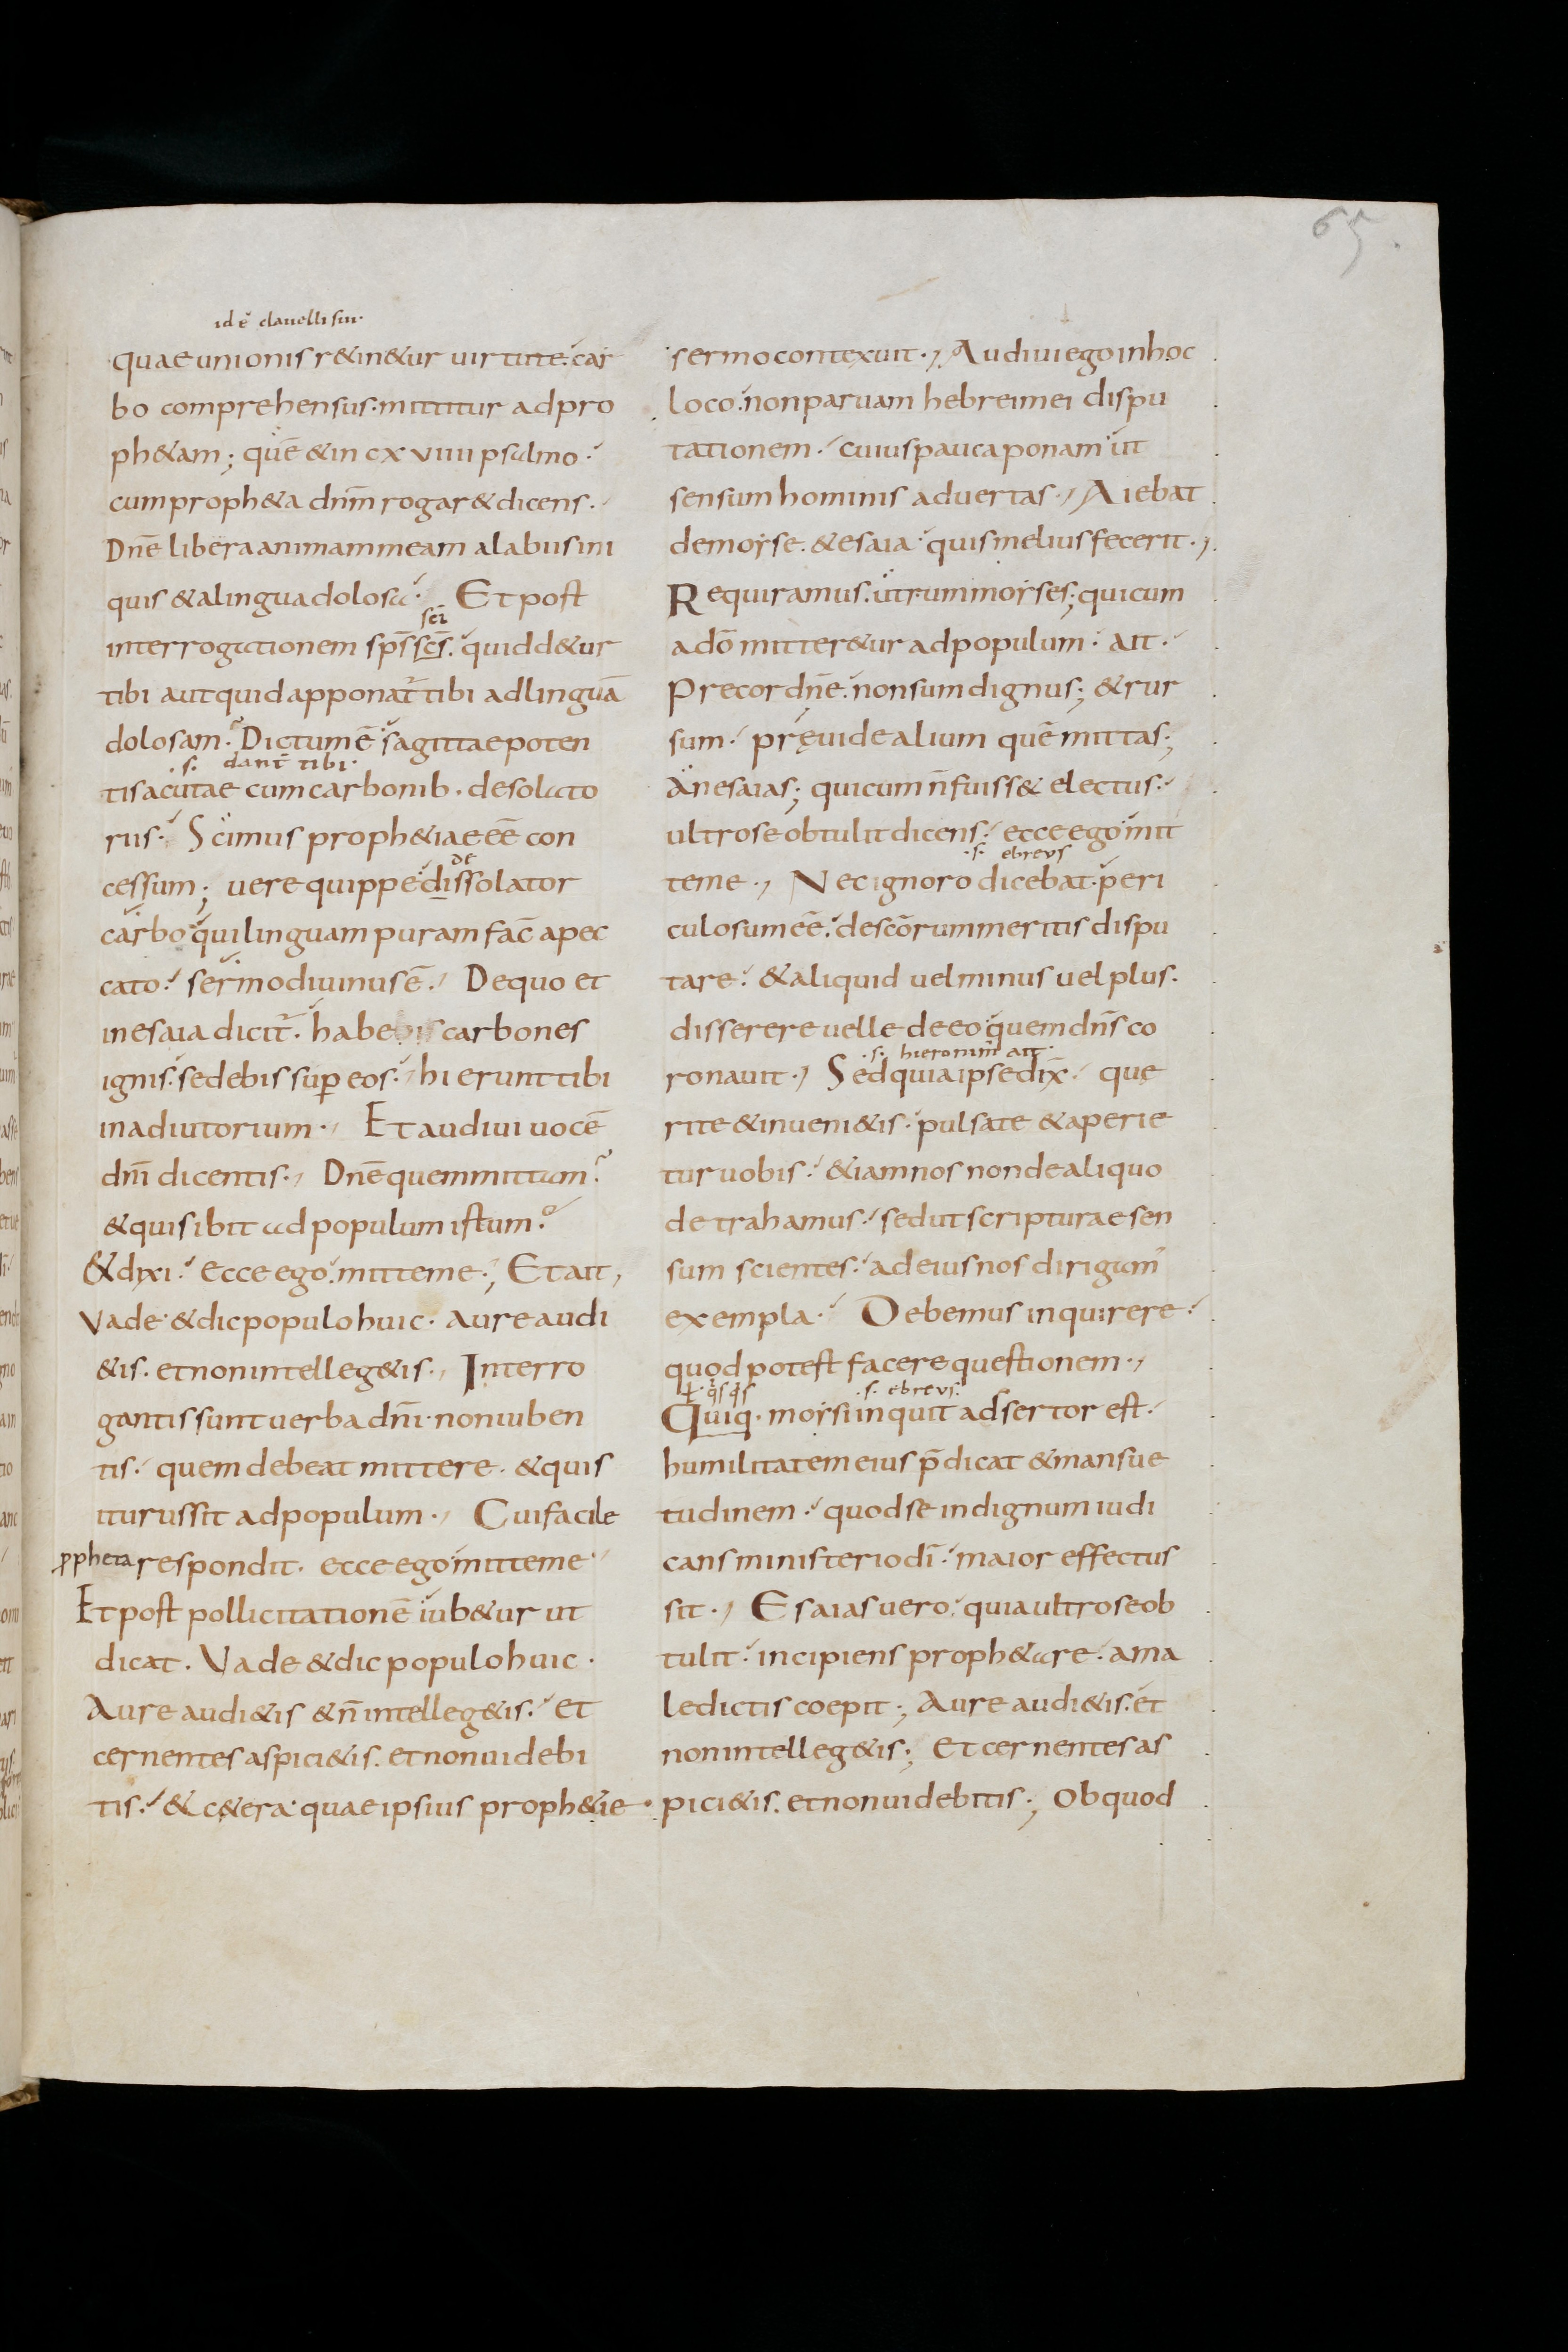 65
id ē clauelli sui
quae unionis r&in&ur uirtute. car
bo comprehensus. mittitur ad pro
ph&am; quē & in cxviiii psalmo.
cum proph&a dn̄m rogar& dicens.
Dn̄e libera animam meam a labiis ini
quis & a lingua dolosa. Et post
sc̄i
interrogationem sp̄s sc̄s. quid d&ur
tibi aut quid apponat̄ tibi ad linguā
dolosam. Dictum ē sagittae poten
.s. dant̄ tibi.
tis acutae cum carbonib. desolato
riis. Scimus proph&iae eē con
de
cessum; uere quippe dissolator
carbo qui linguam puram fac̄ a pec
cato. sermo diuinus ē. De quo et
in esaia dicit̄. habebis carbones
ignis. sedebis sup eos. hi erunt tibi
in adiutorium. Et audiui uocē
dn̄i dicentis. Dn̄e quem mittam.
& quis ibit ad populum istum.
& dixi. ecce ego. mitte me; Et ait,
Vade. & dic populo huic. Aure audi
&is. et non intelleg&is. Interro
gantis sunt uerba dn̄i. non iuben
tis. quem debeat mittere. & quis
iturus sit ad populum. Cui facile
ppheta respondit. ecce ego mitte me
Et post pollicitationē iub&ur ut
dicat. Vade & dic populo huic.
Aure audi&is & n̄ intelleg&is. et
cernentes aspici&is. et non uidebi
tis. & c&era quae ipsius proph&ie
sermo contexuit. Audiui ego in hoc
loco. non paruam hebrei mei dispu
tationem. cuius pauca ponam ut
sensum hominis aduertas. Aiebat
de moyse. & esaia. quis melius fecerit.
Requiramus. utrum moyses; qui cum
a dō mitter&ur ad populum. ait.
Precor dn̄e. non sum dignus; & rur
sum. pręuide alium quē mittas;
An esaias; qui cum n̄ fuiss& electus.
ultro se obtulit dicens. ecce ego mit
.s. ebreus
te me. Nec ignoro dicebat. peri
culosum eē. de sc̄orum meritis dispu
tare. & aliquid uel minus uel plus.
disserere uelle de eo quem dn̄s co
.s. hieronim̄ ait.
ronauit. Sed quia ipse dix̄. que
rite & inueni&is. pulsate & aperie
tur uobis. & iam nos non de aliquo
detrahamus. sed ut scripturae sen
sum scientes. ad eius nos dirigam̄
exempla. Debemus inquirere.
quod potest facere questionem.
ɫ. q̄s q̄s .s. ebreus.
Quiq. moysi inquit adsertor est.
humilitatem eius p̄dicat & mansue
tudinem. quod se indignum iudi
cans ministerio dī. maior effectus
sit. Esaias uero. quia ultro se ob
tulit. incipiens proph&are. a ma
ledictis coepit; Aure audi&is. et
non intelleg&is; Et cernentes as
pici&is. et non uidebitis; Ob quod